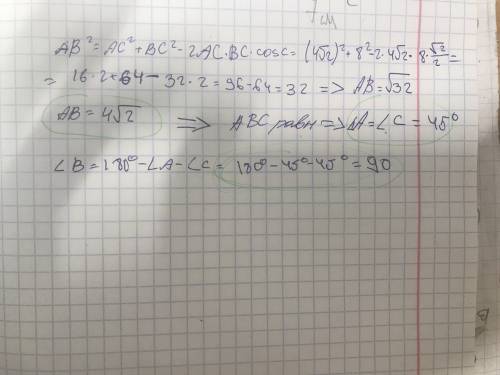 7см
AB² = AC² + BC² - 2AC·BC·cosc = (4√2)² + 8² - 2·4√2·8·√2/2 =
= 16·2+64 - 32·2 = 96-64 = 32 => AB = √32
AB = 4√2 => ABC равн => ∠A = ∠C = 45°
∠B = 180° - ∠A - ∠C = 180° - 45° - 45° = 90